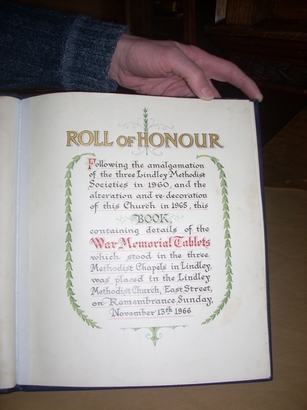 ROLL OF HONOUR
Following the amalgamation
of the three Lindley Methodist
Societies in 1960, and the
alteration and re-decoration
of this Church in 1965, this
BOOK,
containing details of the
War Memorial Tablets
which stood in the three
Methodist Chapels in Lindley,
was placed in the Lindley
Methodist Church, East Street,
on Remembrance Sunday,
November 13th 1966